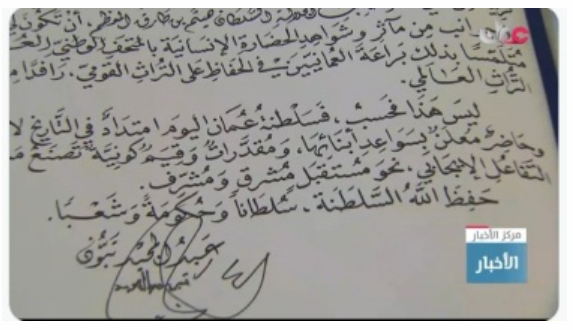 السلطان هيثم بن طارق المعظم، أن تكون
من مآثر وشواهد الحضارة الإنسانية بالمتحف الوطني
متلمسا بذلك براعة العمانيين في الحفاظ على التراث القومي، رافدا
التراث العالمي.
ليس هذا فحسب، فسلطنة عُمان اليوم امتداد في التاريخ
وحاضر معلن بسواعد أبنائها، ومقدرات وقيم كونية تصنع
التفاعل الإيجابي، نحو مستقبل مشرق ومشرف.
حفظ الله السلطنة، سُلطاناً وحكومة وشعبا.
عبد المجيد تبون
مركز الأخبار
الأخبار